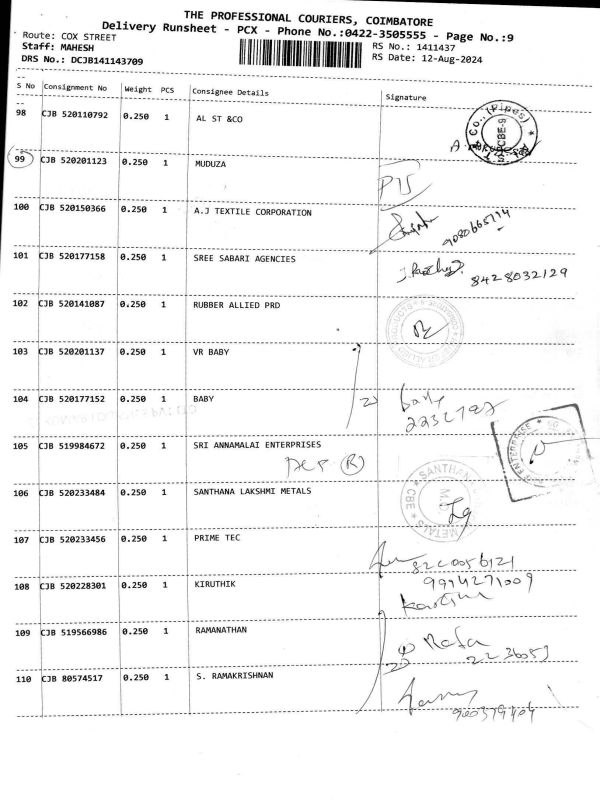 THE PROFESSIONAL COURIERS, COIMBATORE
Delivery Runsheet - PCX - Phone No.:0422-3505555 - Page No.:9
Route: COX STREET
Staff: MAHESH
DRS No.: DCJB141143709
RS No.: 1411437
RS Date: 12-Aug-2024
S No Consignment No Weight PCS Consignee Details Signature
98 CJB 520110792 0.250 1 AL ST &CO
99 CJB 520201123 0.250 1 MUDUZA
100 CJB 520150366 0.250 1 A.J TEXTILE CORPORATION
9080665714
101 CJB 520177158 0.250 1 SREE SABARI AGENCIES
8428032129
102 CJB 520141087 0.250 1 RUBBER ALLIED PRD
103 CJB 520201137 0.250 1 VR BABY
104 CJB 520177152 0.250 1 BABY
105 CJB 519984672 0.250 1 SRI ANNAMALAI ENTERPRISES
(R)
106 CJB 520233484 0.250 1 SANTHANA LAKSHMI METALS
SANTHANA
METALS * CBE *
107 CJB 520233456 0.250 1 PRIME TEC
108 CJB 520228301 0.250 1 KIRUTHIK
9994271009
109 CJB 519566986 0.250 1 RAMANATHAN
110 CJB 80574517 0.250 1 S. RAMAKRISHNAN